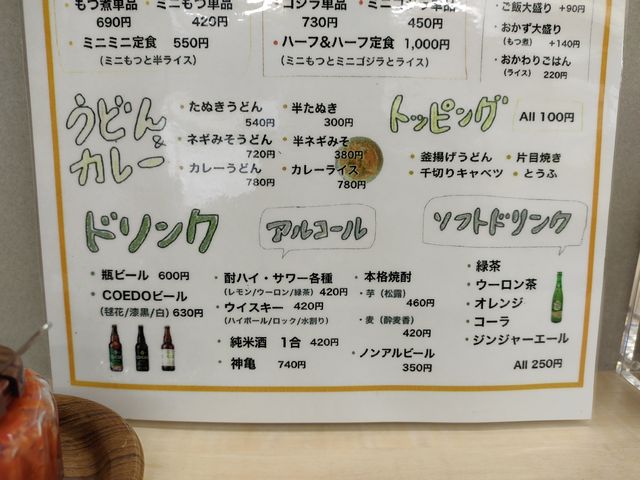 もつ煮単品 ミニもつ単品 ゴジラ単品 ミニゴジラ単品
690円 420円 730円 450円
ミニミニ定食 550円
(ミニもつと半ライス)
ハーフ&ハーフ定食 1,000円
(ミニもつとミニゴジラとライス)
ご飯大盛り +90円
おかず大盛り
(もつ煮) +140円
おかわりごはん
(ライス) 220円
うどん
&
カレー
・たぬきうどん
540円
・ネギみそうどん
720円
・カレーうどん
780円
・半たぬき
300円
・半ネギみそ
380円
・カレーライス
780円
トッピング All 100円
・釜揚げうどん ・片目焼き
・千切りキャベツ ・とうふ
ドリンク
・瓶ビール 600円
・COEDOビール
(毬花/漆黒/白) 630円
アルコール
・酎ハイ・サワー各種
(レモン/ウーロン/緑茶) 420円
・ウイスキー 420円
(ハイボール/ロック/水割り)
・純米酒 1合 420円
・神亀 740円
・本格焼酎
・芋(松露)
460円
・麦(酔麦香)
420円
・ノンアルビール
350円
ソフトドリンク
・緑茶
・ウーロン茶
・オレンジ
・コーラ
・ジンジャーエール
All 250円